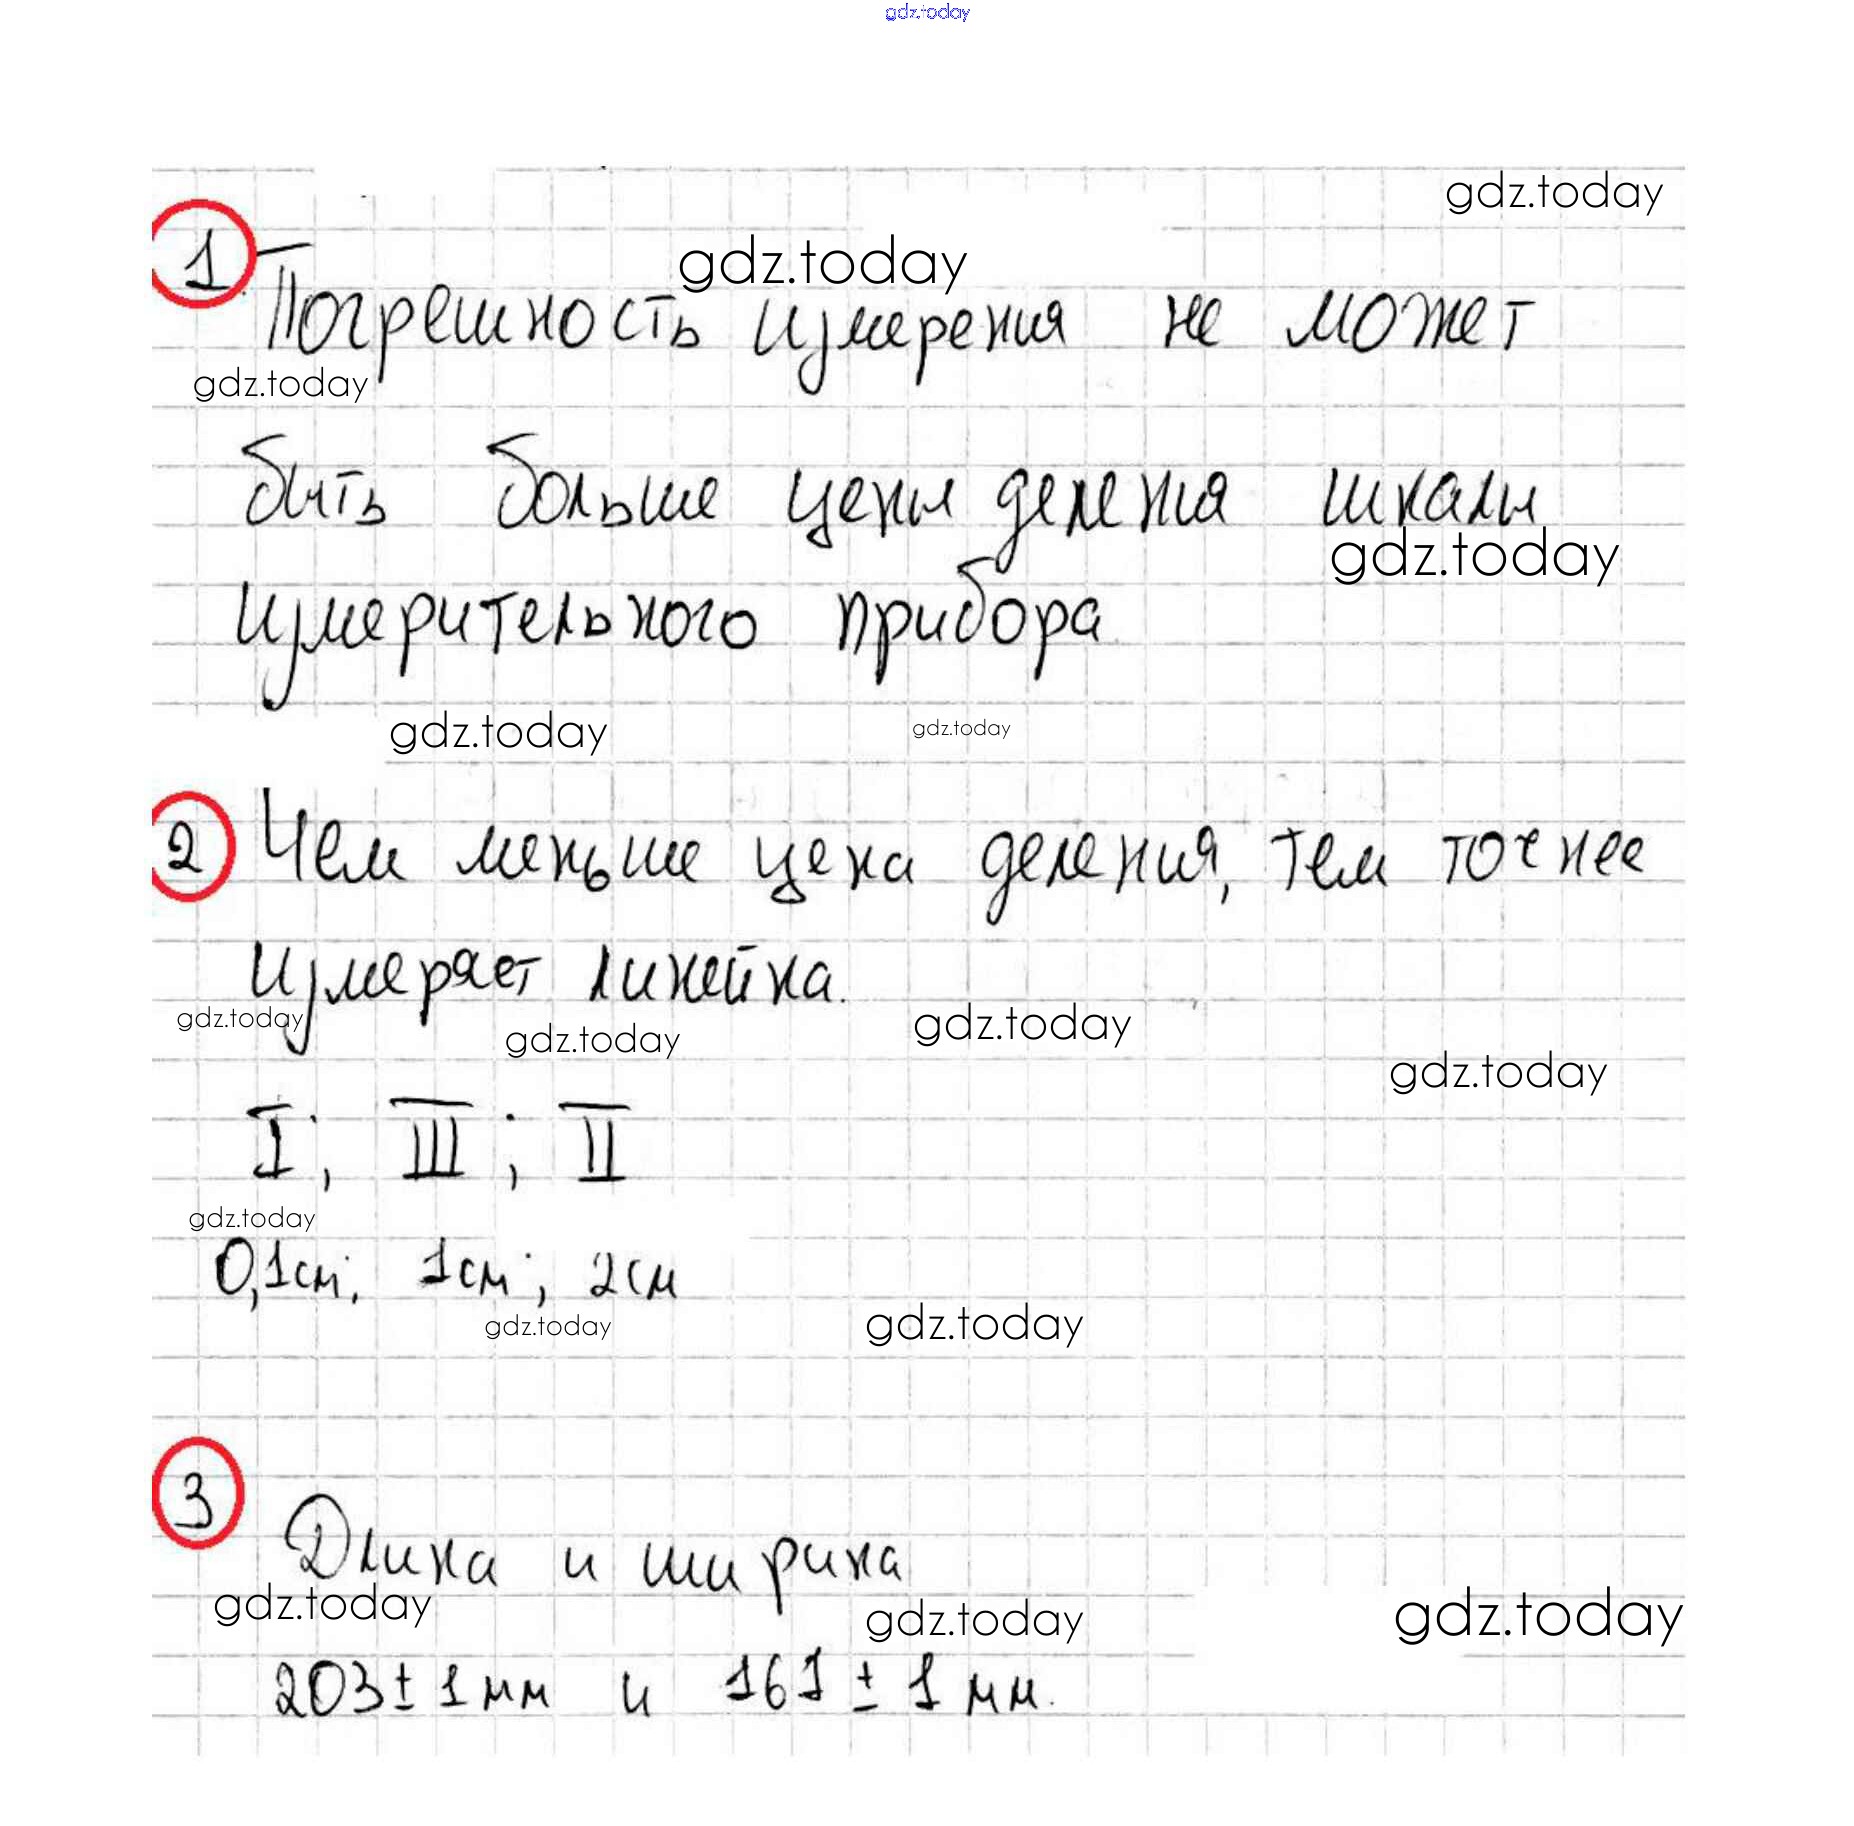 gdz.today
gdz.today
1 gdz.today
Погрешность измерения не может
gdz.today
быть больше цены деления шкалы
gdz.today
измерительного прибора
gdz.today gdz.today
2 Чем меньше цена деления, тем точнее
измеряет линейка.
gdz.today gdz.today gdz.today
gdz.today
I; III; II
gdz.today
0,1см; 1см; 2см
gdz.today gdz.today
3
Длина и ширина
gdz.today gdz.today gdz.today
203 ± 1 мм и 161 ± 1 мм.